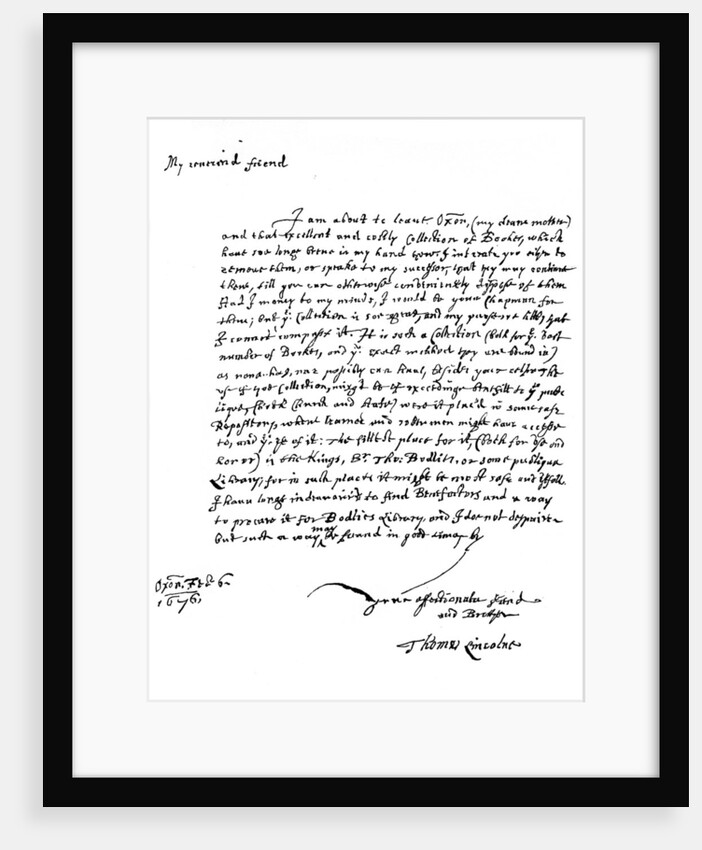 My reverend friend
I am about to leave Oxōn, (my deare mother)
and that excellent and costly Collection of Bookes, which
have soe longe beene in my hand now, I intreate you either to
remove them, or speake to my successor, that they may continue
there, till you can otherwise conveniently dispose of them
Had I money to my minde, I would be your Chapman for
them; but yr. Collection is soe great, and my purse soe little, yat
I cannot compasse it. It is such a Collection (both for ye. vast
number of Bookes, and ye. exact method they are bound in)
as none has, nor possibly can have, besides your selfe. The
Collection, might be of exceedinge benefitt to ye publ
lique, (both Church and State) were it plac'd in some safe
Repository, where learned and sober men might have accesse
to, and ye. use of it: The fittest place for it, (both for Use and
honor) is the Kings, Sr. Tho: Bodlies, or some publique
Library; for in such places it might be most safe and usefull.
I have longe indeavour'd to find Benefactors and a way
to procure it for Bodlies Library, and I doe not despaire
but such a way may be found in good time by
Oxōn. Feb 6.
1676.
youre affectionate friend
and Brother
Thomas Lincolne